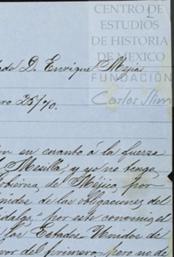 CENTRO DE
ESTUDIOS
DE HISTORIA
DE MEXICO
FUNDACIÓN
Carlos Slim
D. Enrique Mejía
ro 26/70.
en cuanto á la fuerza
Mesilla; y yo no tengo
gobierno de Méjico, por
las obligaciones del
por este convenio, el
los Estados Unidos de
del primero, pero no de